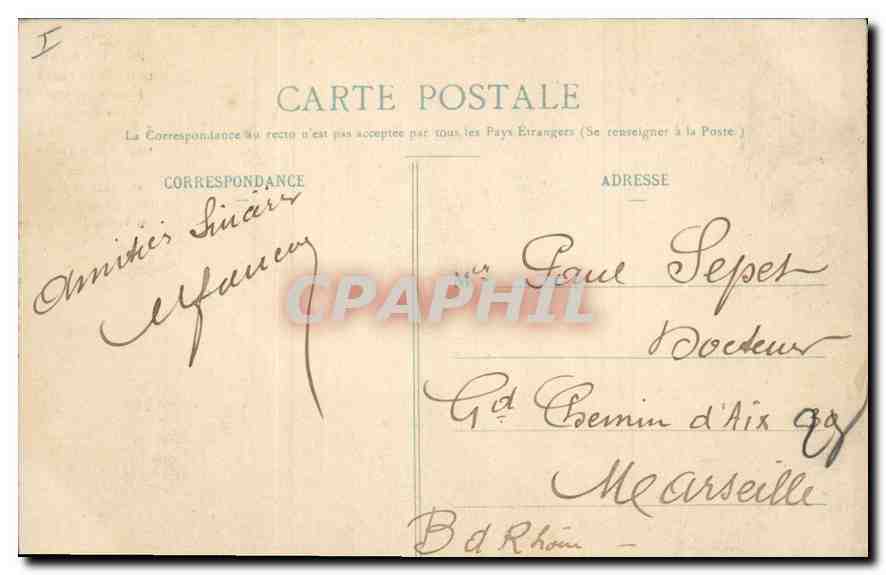 I
CARTE POSTALE
La Correspondance au recto n'est pas acceptée par tous les Pays Étrangers (Se renseigner à la Poste.)
CORRESPONDANCE
Amitiés Sincères
ADRESSE
Paul Sepet
Docteur
Gd Chemin d'Aix 99
Marseille
B d Rhône
CPAPHIL